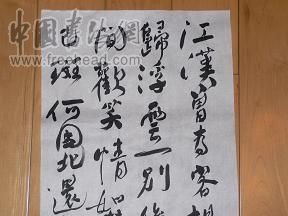 江漢曾為客相
歸浮雲一別後
間歡笑情如
已斑何因北還
中國書法網
www.freehead.com